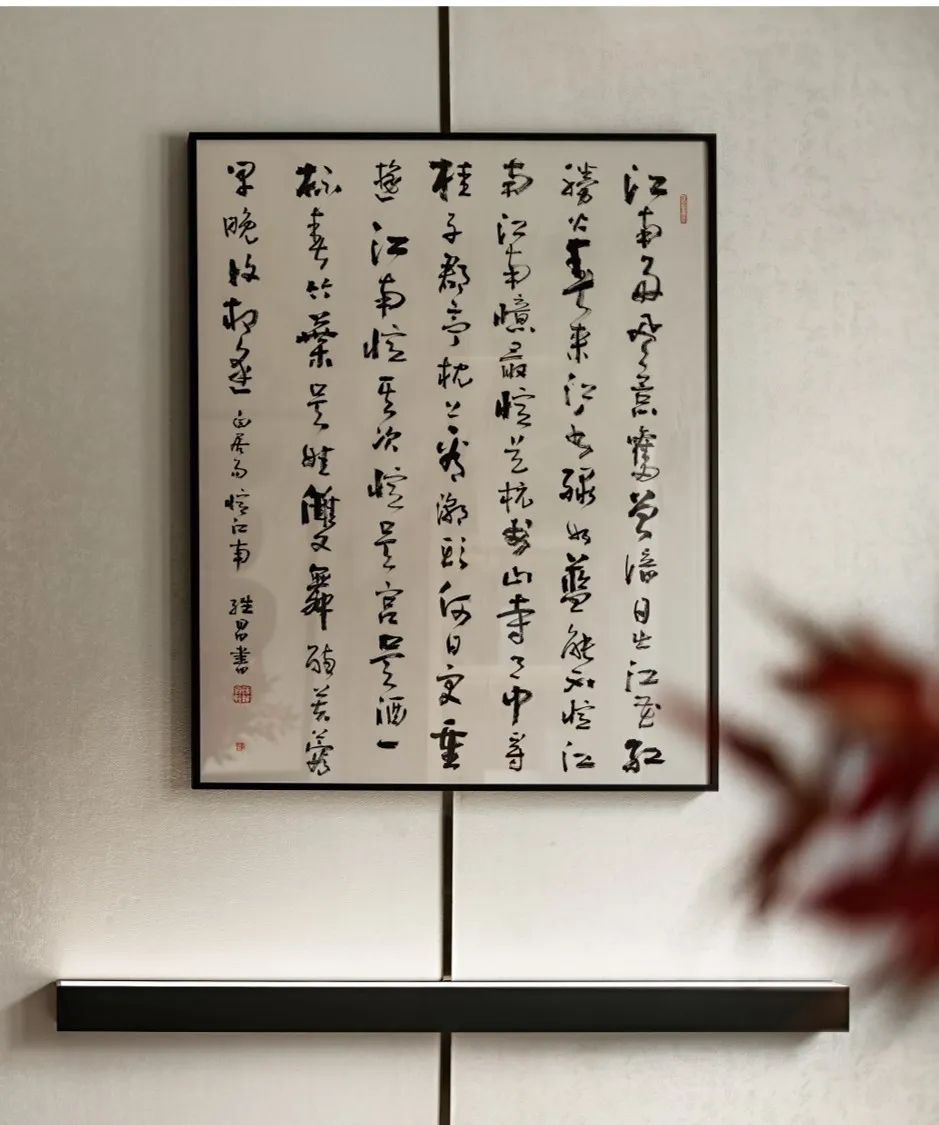 江南好風景舊曾諳日出江花紅
勝火春來江水緑如藍能不憶江
南江南憶最憶是杭州山寺月中尋
桂子郡亭枕上看潮頭何日更重
遊江南憶其次憶吳宮吳酒一
杯春竹葉吳娃雙舞醉芙蓉
早晚復相逢 白居易憶江南 継昌書